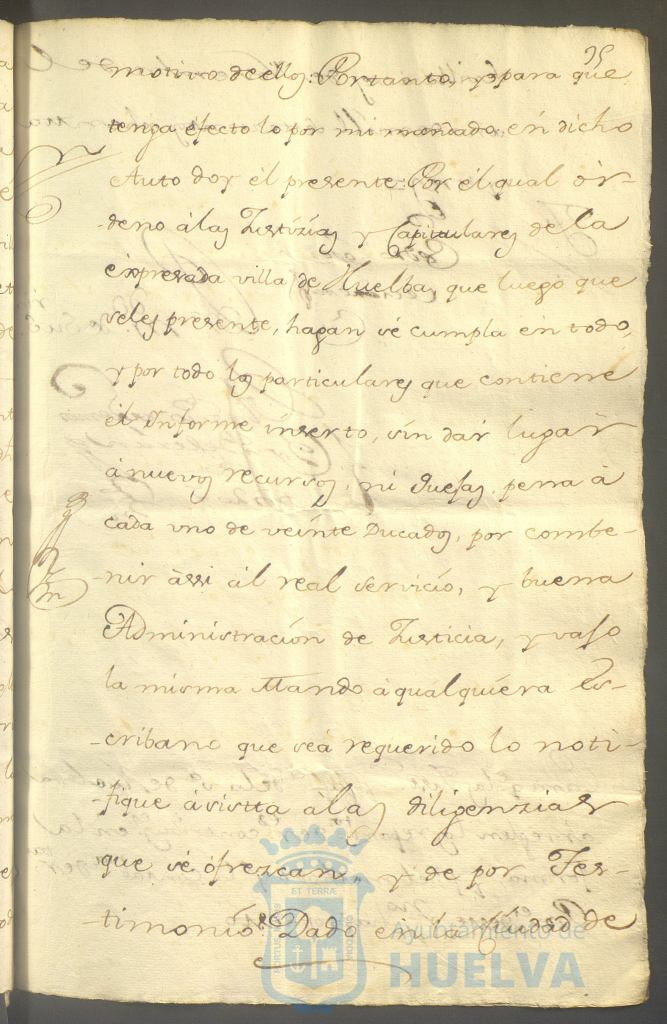 35
motivo de ellos: Portanto, y para que
tenga efecto lo por mi mandado, en dicho
Auto doy el presente: Por el qual òr-
deno à las Justizias y Capitulares de la
expresada villa de Huelba, que luego que
veles presente, hagan sè cumpla en todo,
y por todo los particulares que contiene
èl Informe inserto, sin dar lugar
à nuevos recursos, ni quejas, pena à
cada uno de veinte Ducados, por combe-
nir àssi àl real servicio, y buena
Administraciòn de Justicia, y vajo
la misma Mando à qualquiera Es-
-cribano que seà requerido lo noti-
fique àsista à las diligenzias
que sè ofrezcan, y de por Tes-
-timonio. Dado en la Ciudad de
ET TERRÆ
Ayuntamiento de
HUELVA